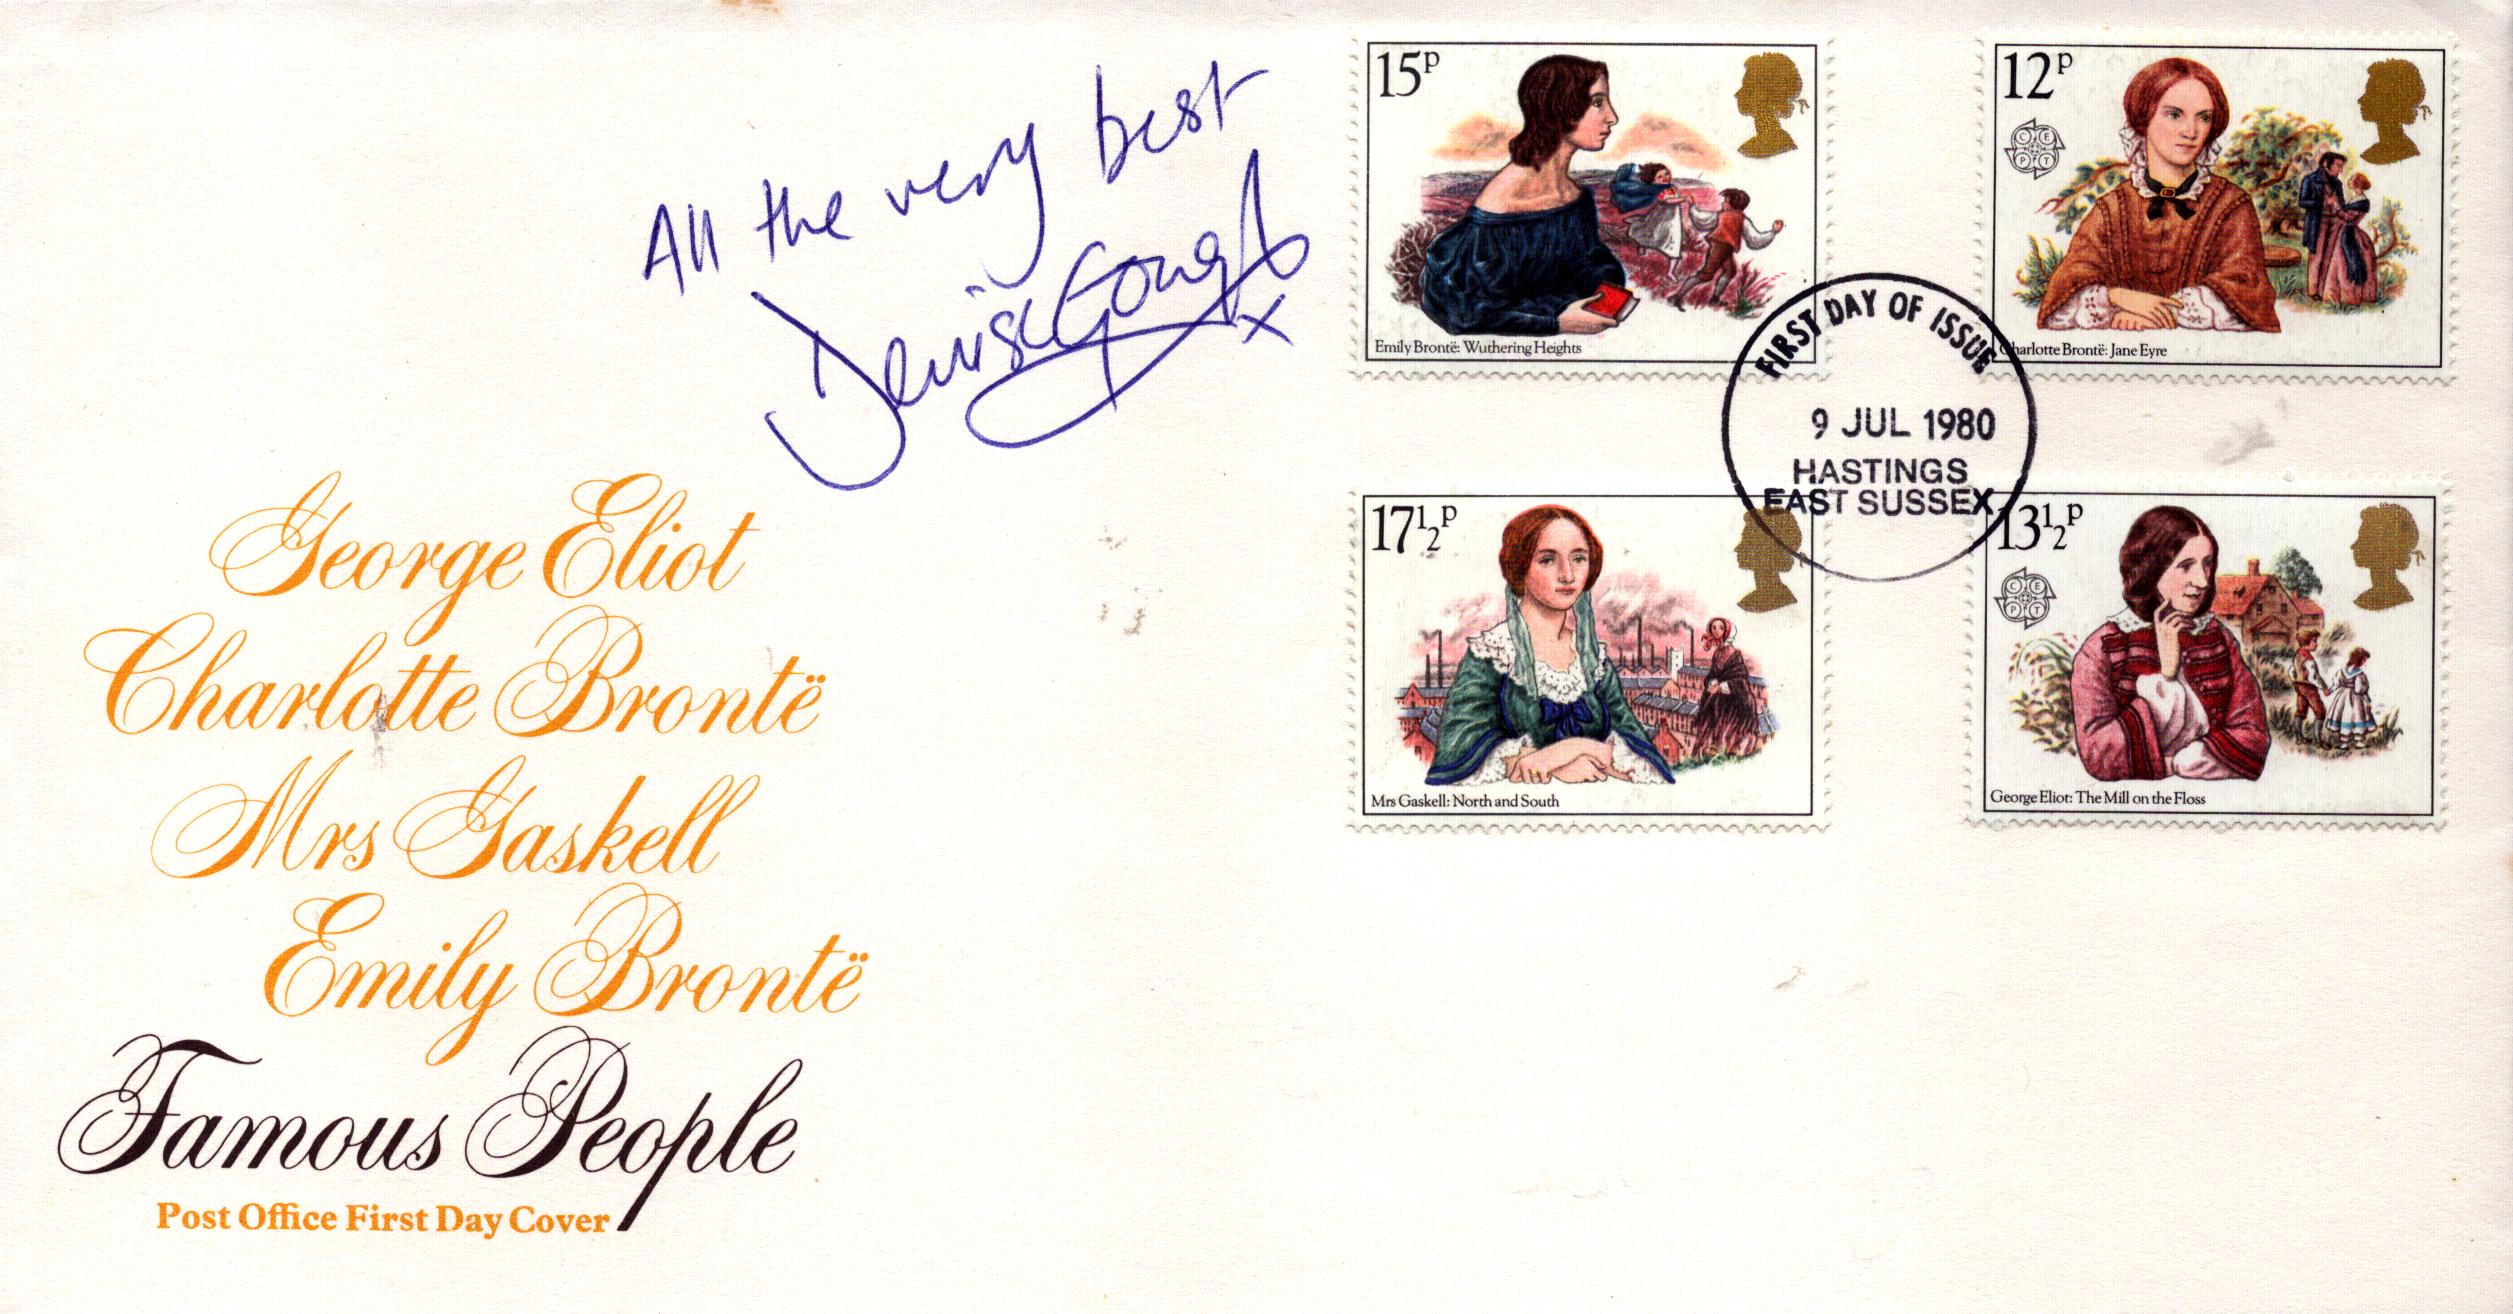 All the very best
Denise Gough x
George Eliot
Charlotte Brontë
Mrs Gaskell
Emily Brontë
Famous People
Post Office First Day Cover
15P
Emily Brontë: Wuthering Heights
12P
CEPT
Charlotte Brontë: Jane Eyre
FIRST DAY OF ISSUE
9 JUL 1980
HASTINGS
EAST SUSSEX
17½P
Mrs Gaskell: North and South
13½P
CEPT
George Eliot: The Mill on the Floss